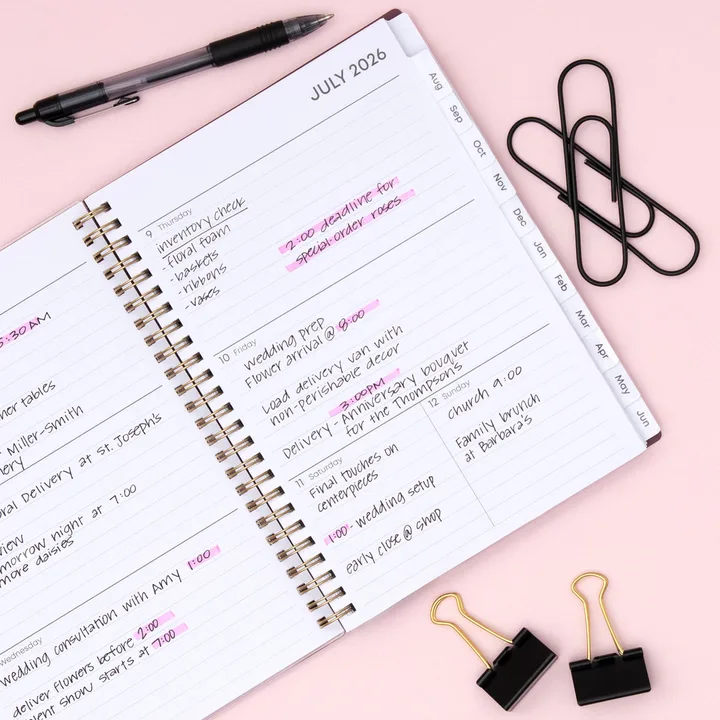 5:30 AM
her tables
Miller-Smith
ery
oral Delivery at St. Joseph's
view
morrow night at 7:00
more daisies
Wednesday
wedding consultation with Amy 1:00
deliver flowers before 2:00
vent show starts at 7:00
JULY 2026
9 Thursday
inventory check
-floral foam
-baskets
-ribbons
-vases
2:00 deadline for
special-order roses
10 Friday
wedding prep
Flower arrival @ 8:00
Load delivery van with
non-perishable decor
3:00PM
Delivery - Anniversary bouquet
for the Thompson's
11 Saturday
Final touches on
centerpieces
1:00 - wedding setup
early close @ shop
12 Sunday
church 9:00
Family brunch
at Barbara's
Aug
Sep
Oct
Nov
Dec
Jan
Feb
Mar
Apr
May
Jun